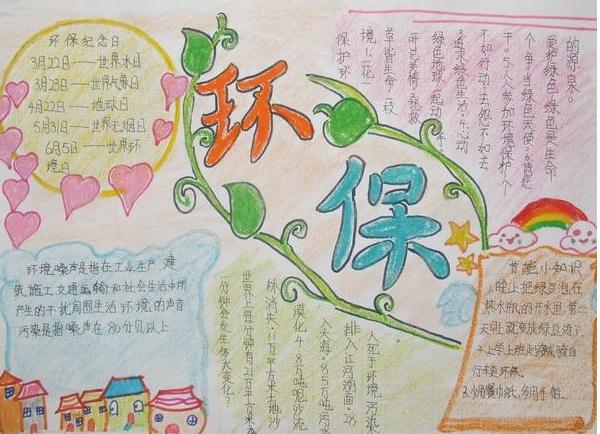 环保
环保纪念日
3月22日——世界水日
3月23日——世界气象日
4月22日——地球日
5月31日——世界无烟日
6月5日——世界环
境日
保护环
境:1.一花一
草皆生命,一枝
绿色地球,起动
3.追求绿色生活
不如行动;去怨不如去
干。5.人人参加环境保护,个
个争当绿色天使。6.请您
爱护绿色,绿色是生命
的源泉。
环境噪声是指在工业生产,建
筑施工,交通运输和社会生活中所
产生的干扰周围生活环境的声音
污染是指噪声在80分贝以上.
人死于环境污染
排入江河湖面.28
人大海.85万吨污水
漠化4.8万吨泥沙流
林消失.11万平方米土地沙
世界上每分钟有21万平方米森
一分钟会发生多大变化?
节能小知识
1.晚上把绿豆泡在
热水瓶的开水里,第二
天早上就变成绿豆汤了
2.上学上班走路或骑自
行车更环保。
3.少用餐巾纸,多用手帕。